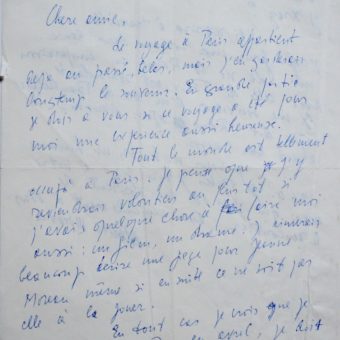 Chere amie,
Le voyage à Paris appartient
deja au passé, helas, mais j'en garderai
longtemps le souvenir. En grande partie
je dois à vous si ce voyage a été pour
moi une experience aussi heureuse.
Tout le monde est tellement
occupé à Paris. Je pense que j'y
reviendrais volontiers au printemps si
j'avais quelque chose à faire moi
aussi: un film, un drame? J'aimerais
beaucoup écrire une piece pour Jeanne
Moreau même si ensuite ce ne soit pas
elle à la jouer.
En tout cas je crois que je
avril, je doit